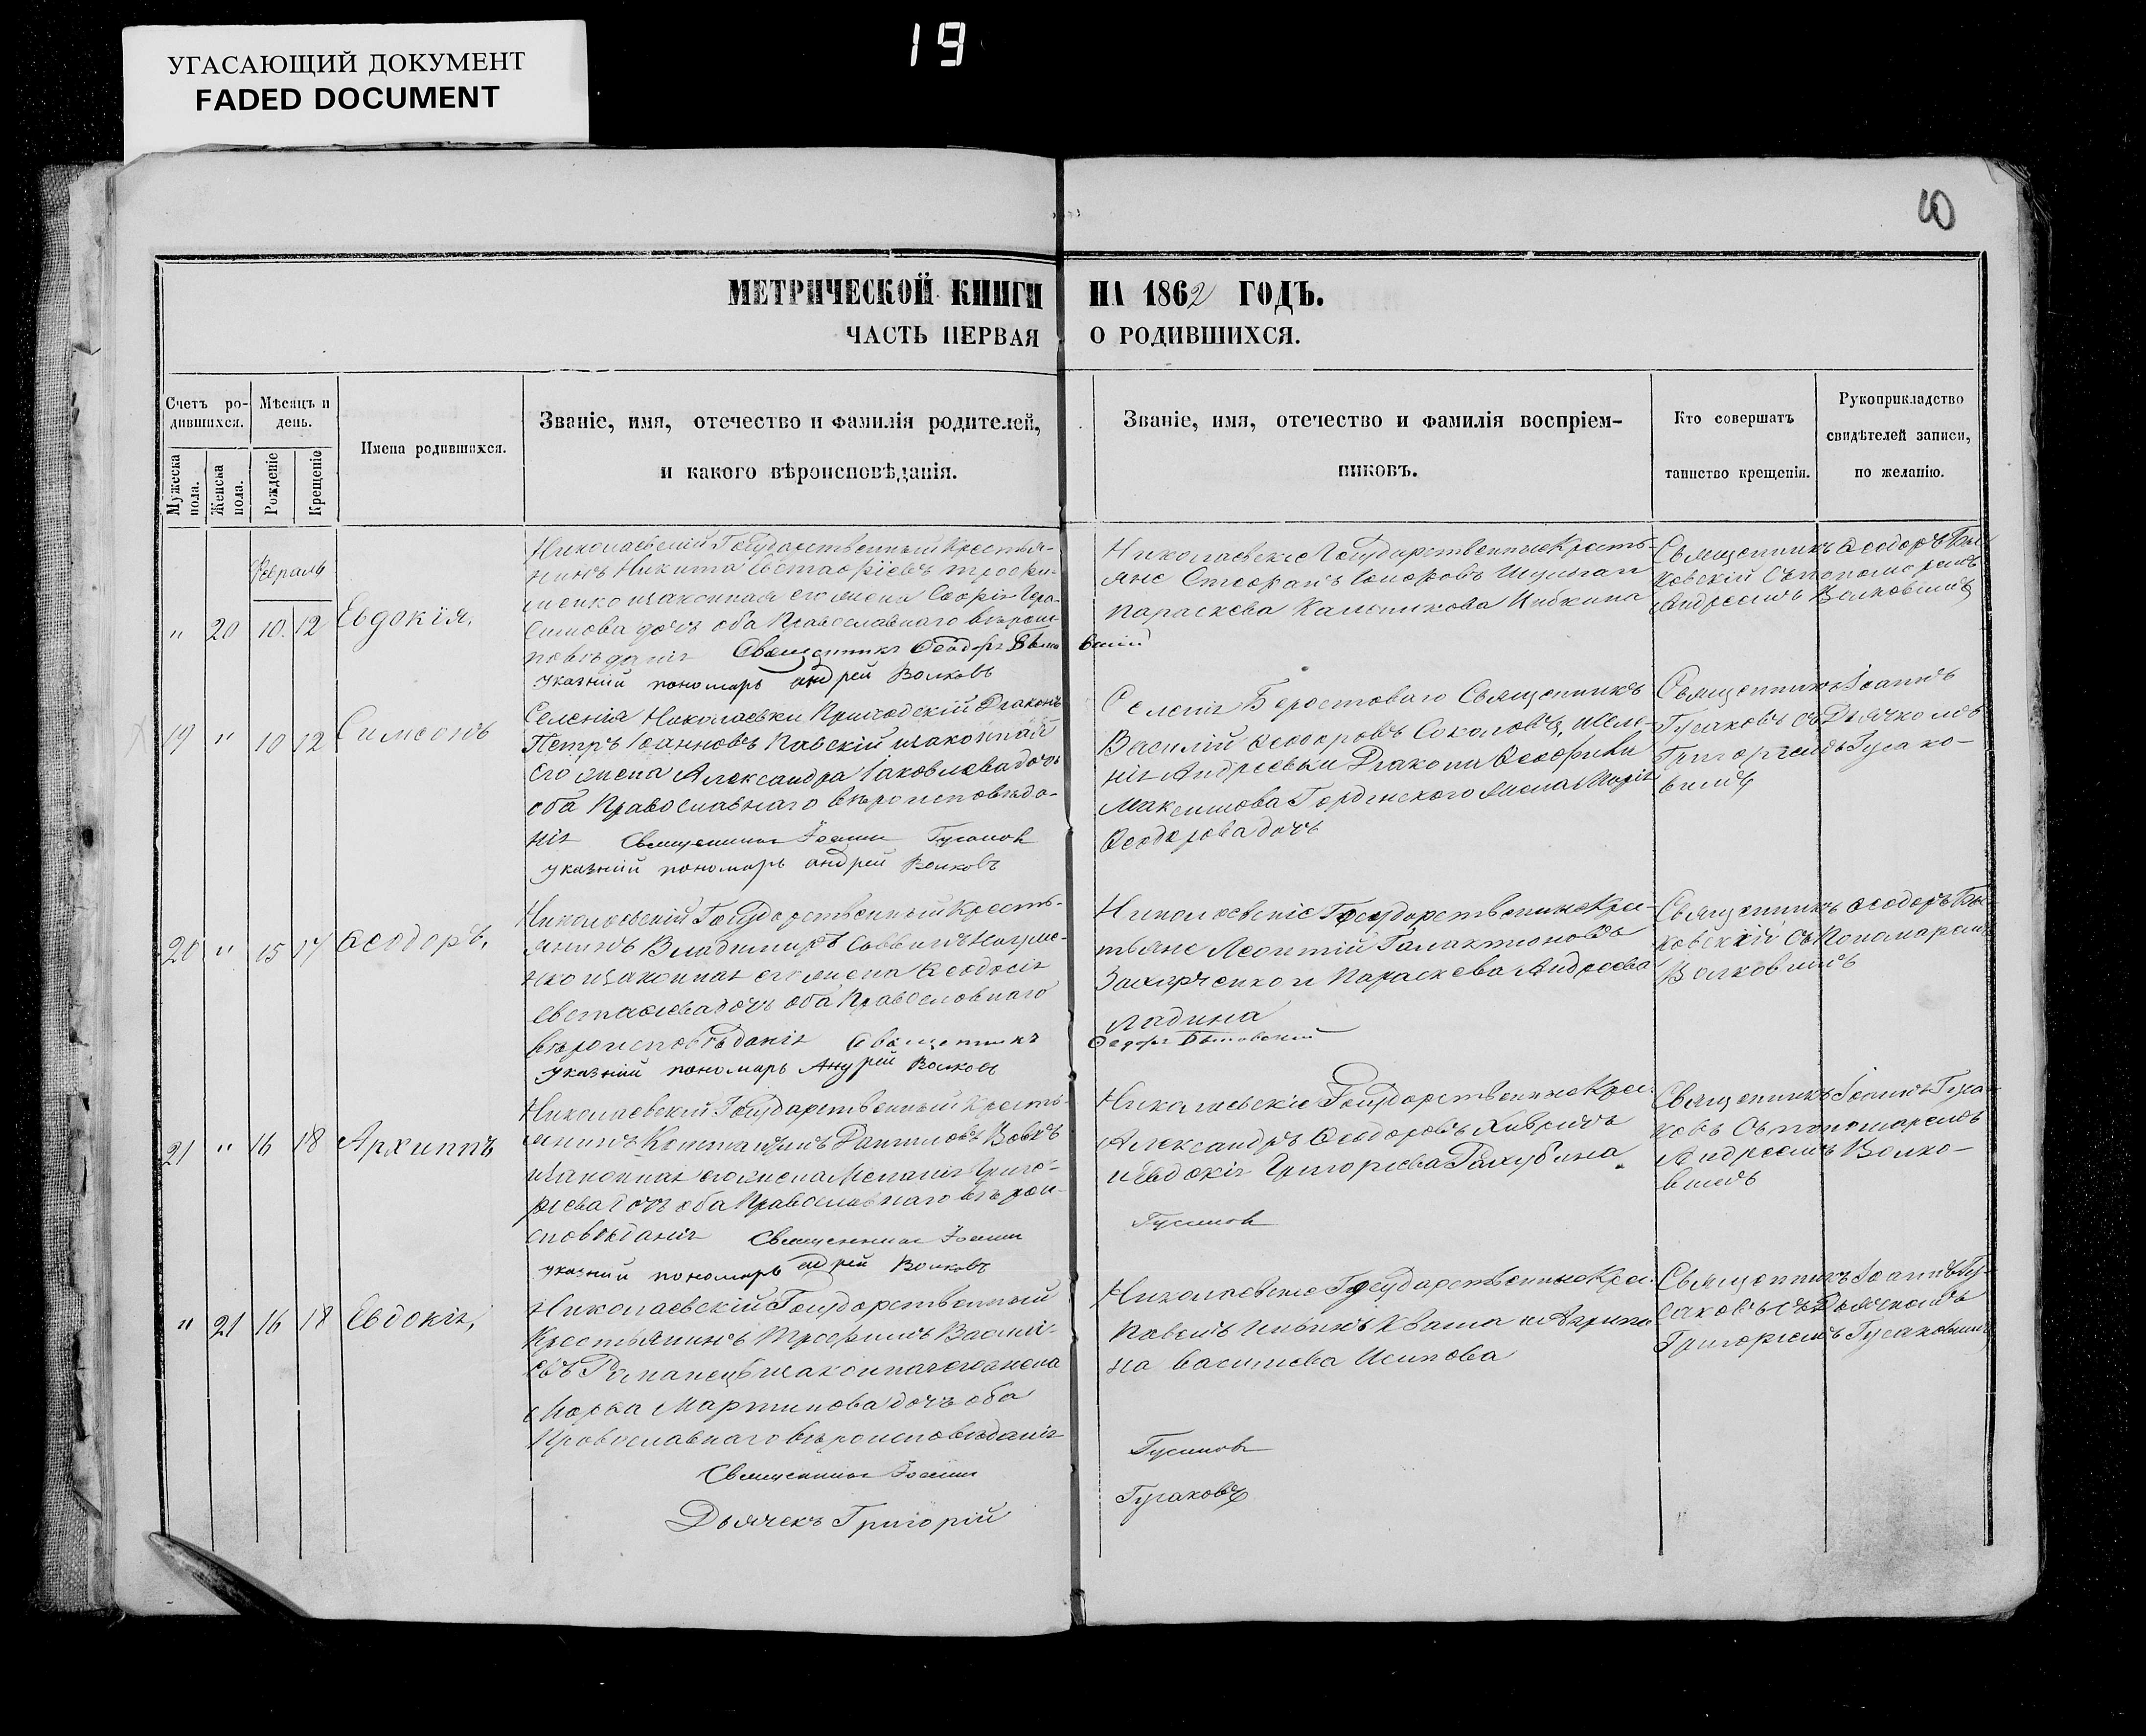 19
УГАСАЮЩИЙ ДОКУМЕНТ
FADED DOCUMENT
10
МЕТРИЧЕСКОЙ КНИГИ НА 1862 ГОДЪ.
ЧАСТЬ ПЕРВАЯ О РОДИВШИХСЯ.
Счетъ ро-
дившихся.
Мужеска пола.
Женска пола.
Мѣсяцъ и день.
Рожденіе
Крещеніе
Имена родившихся.
Званіе, имя, отечество и фамилія родителей,
и какого вѣроисповѣданія.
Званіе, имя, отечество и фамилія воспріем-
никовъ.
Кто совершатъ
таинство крещенія.
Рукоприкладство
свидѣтелей записи,
по желанію.
Февраль
" 20 10. 12 Евдокія,
Николаевскій Государственный Крестья-
нинъ Никита Евстафіевъ Трофи-
менко и законная его жена Софія Гера-
симова дочь оба Православнаго вѣроис-
повѣданія Священникъ Ѳеодоръ
указный пономарь Андрей Волковъ
Николаевскіе Государственные Кресть-
яне Стефанъ
Параскева
Священникъ Ѳеодоръ
ковскій съ пономаремъ
Андреемъ Волковымъ
19 " 10 12 Симеонъ
Селенія Николаевки Приходскій Діаконъ
Петръ Іоанновъ Павскій и законная
его жена Александра Іаковлева дочь
оба Православнаго вѣроисповѣда-
нія Священникъ Іоаннъ Гусаковъ
указный пономарь Андрей Волковъ
Селенія Берестоваго Священникъ
Василій Ѳеодоровъ Соколовъ, и Селе-
нія Андреевки Діакона Ѳеофила
Максимова Гординского жена Марія
Ѳеодорова дочь
Священникъ Іоаннъ
Гусаковъ съ Дьячкомъ
Григоріемъ Гусако-
вымъ
20 " 15 17 Ѳеодоръ,
Николаевскій Государственный Кресть-
янинъ Владимиръ Саввинъ
и законная его жена Ѳеодосія
Евстафіева дочь оба Православнаго
вѣроисповѣданія Священникъ
указный пономарь Андрей Волковъ
Николаевскіе Государственные Крес-
тьяне Леонтій Галактионовъ
Захарченко и Параскева Андреева
Ладина
Ѳеодоръ
Священникъ Ѳеодоръ
ковскій съ Пономаремъ
Волковымъ
21 " 16 18 Архиппъ
Николаевскій Государственный Кресть-
янинъ Константинъ Даниловъ Вовкъ
и законная его жена Меланія Григо-
рьева дочь оба Православнаго вѣрои-
сповѣданія Священникъ Іоаннъ
указный пономарь Андрей Волковъ
Николаевскіе Государственные Крес.
Александръ Ѳеодоровъ
и Евдокія Григорьева Галубина.
Гусаковъ
Священникъ Іоаннъ Гуса-
ковъ съ пономаремъ
Андреемъ Волко-
вымъ
" 21 16 18 Евдокія,
Николаевскій Государственный
Крестьянинъ Трофимъ Василі-
евъ и законная его жена
Марѳа Мартинова дочь оба
Православнаго вѣроисповѣданія
Священникъ Іоаннъ
Дьячекъ Григорій
Николаевскіе Государственные Крес.
Павелъ Ильинъ Кваша и Агрипи-
на Василиева Исипова
Гусаковъ
Гусаковъ
Священникъ Іоаннъ Гу-
саковъ съ Дьячкомъ
Григоріемъ Гусаковымъ